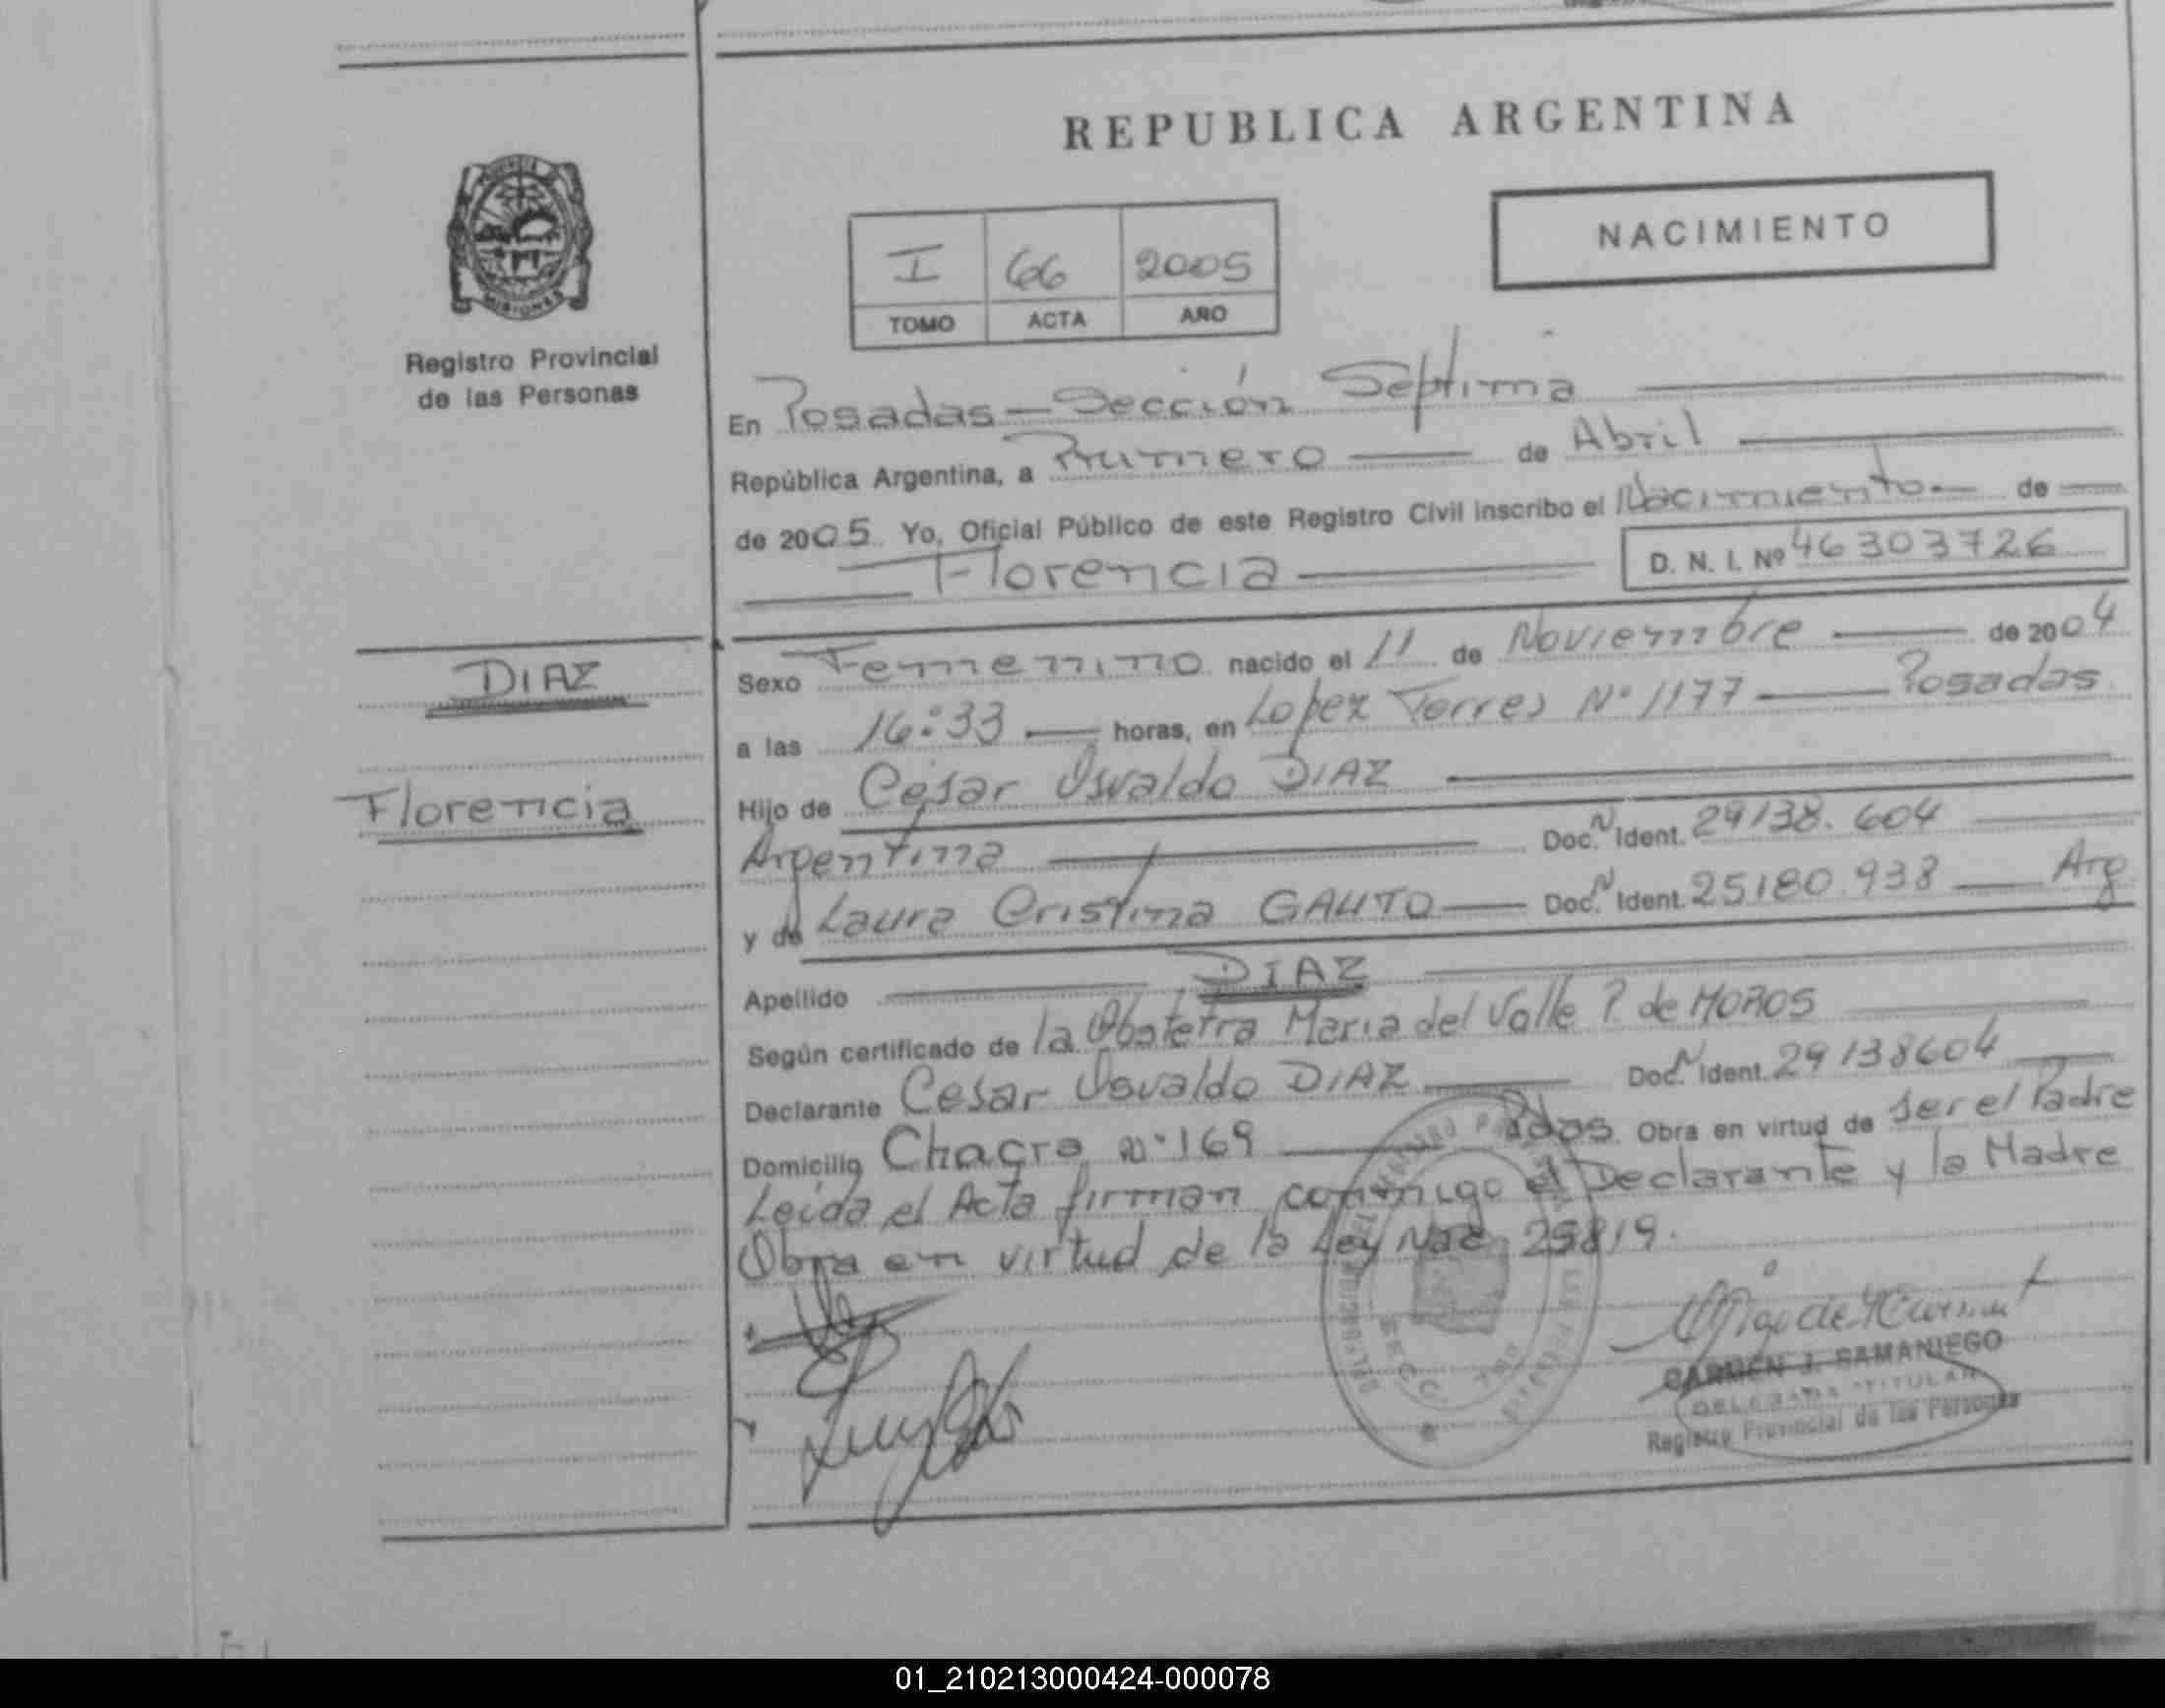 REPUBLICA ARGENTINA
NACIMIENTO
I 66 2005
TOMO ACTA AÑO
PROVINCIA DE
MISIONES
Registro Provincial
de las Personas
En Posadas - Sección Septima
República Argentina, a Primero de Abril
de 2005. Yo, Oficial Público de este Registro Civil inscribo el Nacimiento de
Florencia
D. N. I. Nº 46303726
DIAZ
Florencia
Sexo Femenino nacido el 11 de Noviembre de 2004
a las 16:33 horas, en Lopez Torres Nº 1177 Posadas
Hijo de César Osvaldo DIAZ
Argentina Doc. N Ident. 29138.604
y de Laura Cristina GAUTO Doc. N Ident. 25180.938 Arg
Apellido DIAZ
Según certificado de la Obstetra Maria del Valle P. de MOROS
Declarante Cesar Osvaldo DIAZ Doc. N Ident. 29138604
Domicilio Chacra Nº 169 Pdas. Obra en virtud de ser el Padre
Leida el Acta firman conmigo el Declarante y la Madre
Obra en virtud de la Ley Nac 25819.
CARMEN J. SAMANIEGO
DELEGADA TITULAR
Registro Provincial de las Personas
01_210213000424-000078